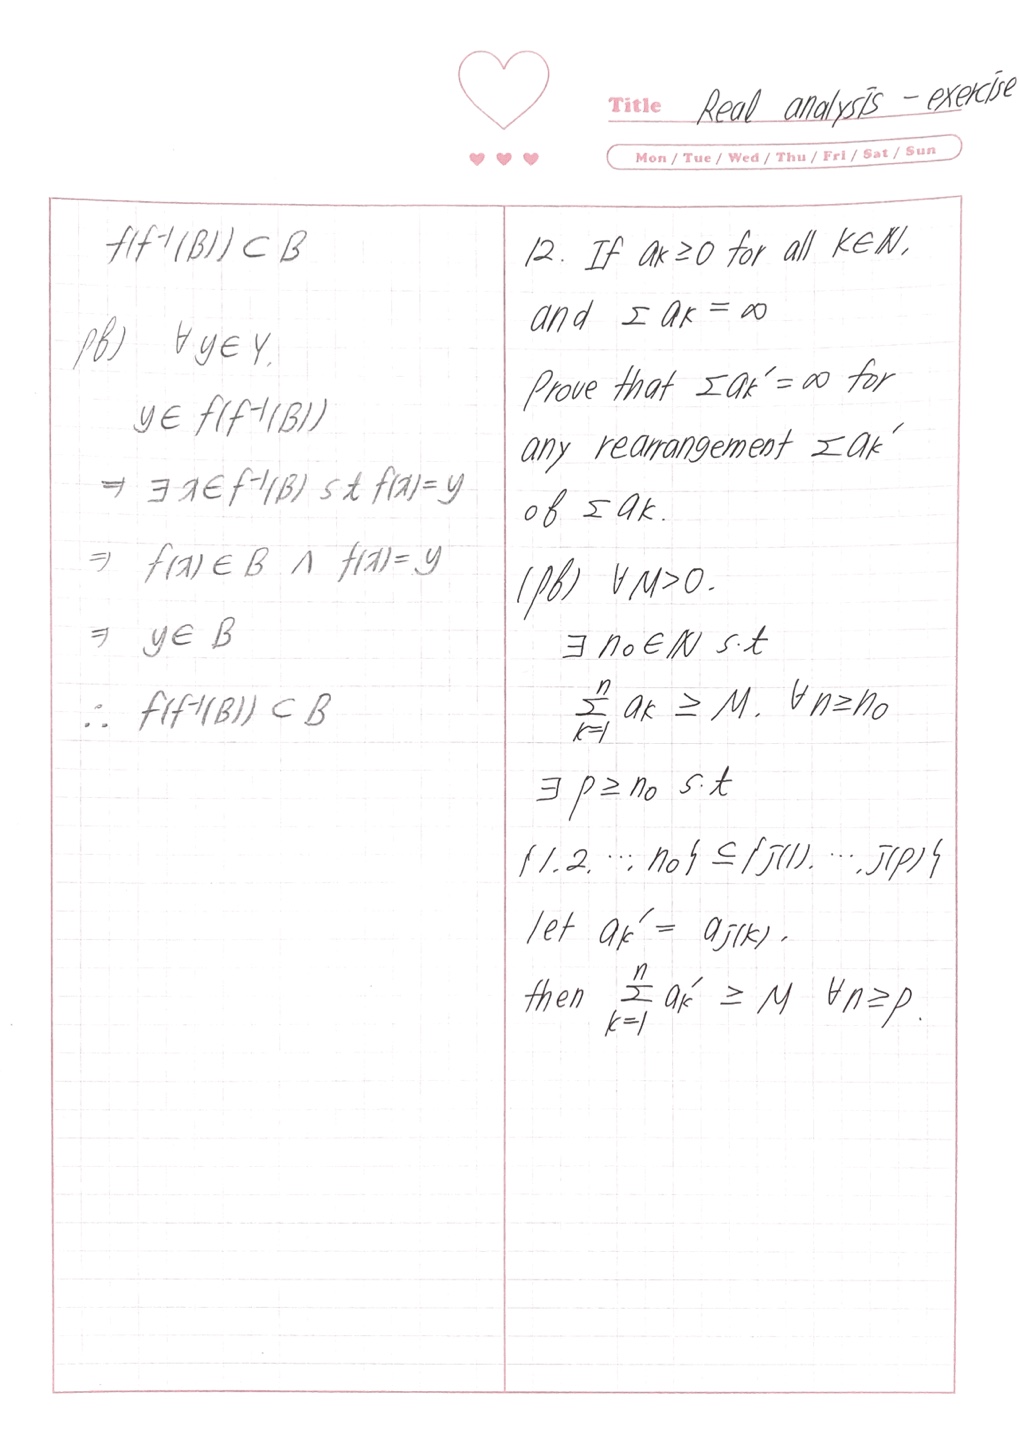 Title Real analysis - exercise
Mon / Tue / Wed / Thu / Fri / Sat / Sun
f(f⁻¹(B)) ⊂ B
pf) ∀y∈Y.
y∈ f(f⁻¹(B))
⇒ ∃x∈f⁻¹(B) s t f(x)=y
⇒ f(x)∈B ∧ f(x)=y
⇒ y∈ B
∴ f(f⁻¹(B)) ⊂ B
12. If ak≥0 for all k∈ℕ,
and Σ ak = ∞
Prove that Σak′=∞ for
any rearrangement Σak′
of Σ ak.
(pf) ∀M>0.
∃ n₀∈ℕ s.t
Σₖ₌₁ⁿ ak ≥ M. ∀n≥n₀
∃ p≥n₀ s.t
{1.2. ⋯, n₀} ⊆ {j(1). ⋯, j(p)}
let ak′ = aj(k).
then Σₖ₌₁ⁿ ak′ ≥ M ∀n≥p.